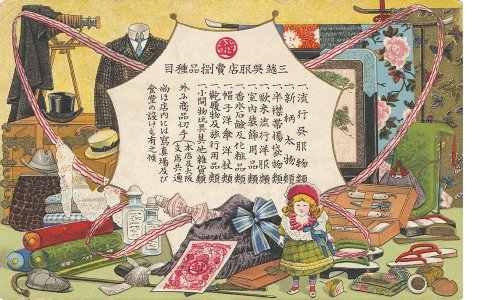 三越呉服店賣捌品種目
一、流行呉服物類
一、新柄太物類
一、半襟帯揚袋物類
一、歐米流行洋服類
一、室内装飾用品類
一、香水石鹸及化粧品類
一、帽子洋傘洋杖類
一、靴履物及旅行用品類
一、小間物玩具其他雑貨類
外ニ商品切手(本店及大阪支店共通)
尚ほ店内には寫眞場及び
食堂の設けも有之候